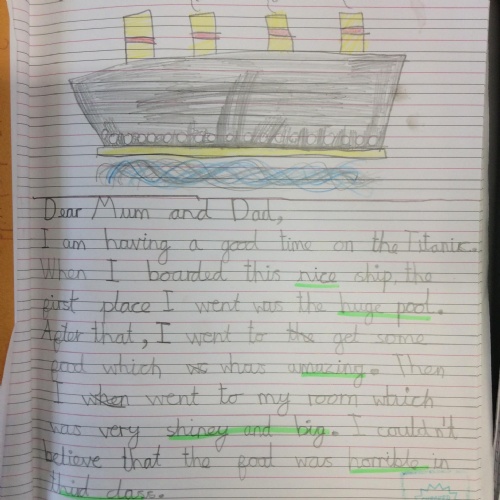 Dear Mum and Dad,
I am having a good time on the Titanic.
When I boarded this nice ship, the
first place I went was the huge pool.
After that, I went to the get some
food which whas amazing. Then
I when went to my room which
was very shiney and big. I couldn't
believe that the food was horrible in
thid class.